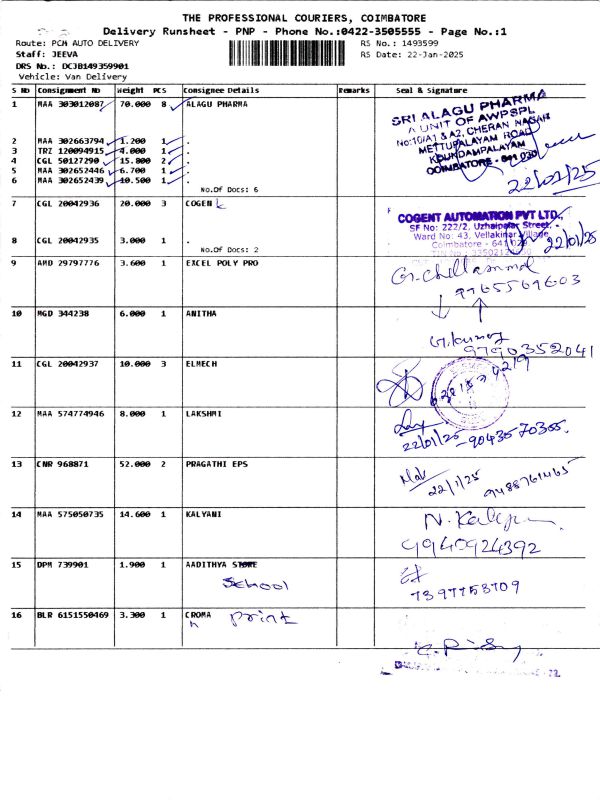 THE PROFESSIONAL COURIERS, COIMBATORE
Delivery Runsheet - PNP - Phone No.:0422-3505555 - Page No.:1
Route: PCM AUTO DELIVERY RS No.: 1493599
Staff: JEEVA RS Date: 22-Jan-2025
DRS No.: DCJB149359901
Vehicle: Van Delivery
S No Consignment No Weight PCS Consignee Details Remarks Seal & Signature
1 MAA 303012087 70.000 8 ALAGU PHARMA
SRI ALAGU PHARMA
A UNIT OF AWPSPL
No:10/A1 & A2, CHERAN NAGAR
METTUPALAYAM ROAD
KOUNDAMPALAYAM
COIMBATORE - 641 030
22/01/25
2 MAA 302663794 1.200 1 .
3 TRZ 120094915 4.000 1 .
4 CGL 50127290 15.800 2 .
5 MAA 302652446 6.700 1 .
6 MAA 302652439 10.500 1 .
No.Of Docs: 6
7 CGL 20042936 20.000 3 COGEN
COGENT AUTOMATION PVT LTD.,
SF No: 222/2, Uzhaipalar Street,
Ward No: 43, Vellakinar Village,
Coimbatore - 641 029
22/01/25
8 CGL 20042935 3.000 1 .
No.Of Docs: 2
9 AMD 29797776 3.600 1 EXCEL POLY PRO
G. Chellammal
9765569603
10 MGD 344238 6.000 1 ANITHA
9790352041
11 CGL 20042937 10.000 3 ELMECH
12 MAA 574774946 8.000 1 LAKSHMI
22/01/25 - 9043570355.
13 CNR 968871 52.000 2 PRAGATHI EPS
22/1/25 9488761465
14 MAA 575050735 14.600 1 KALYANI
N. Kalyani
9940924392
15 DPM 739901 1.900 1 AADITHYA STORE
SCHOOL
7397753709
16 BLR 6151550469 3.300 1 CROMA print